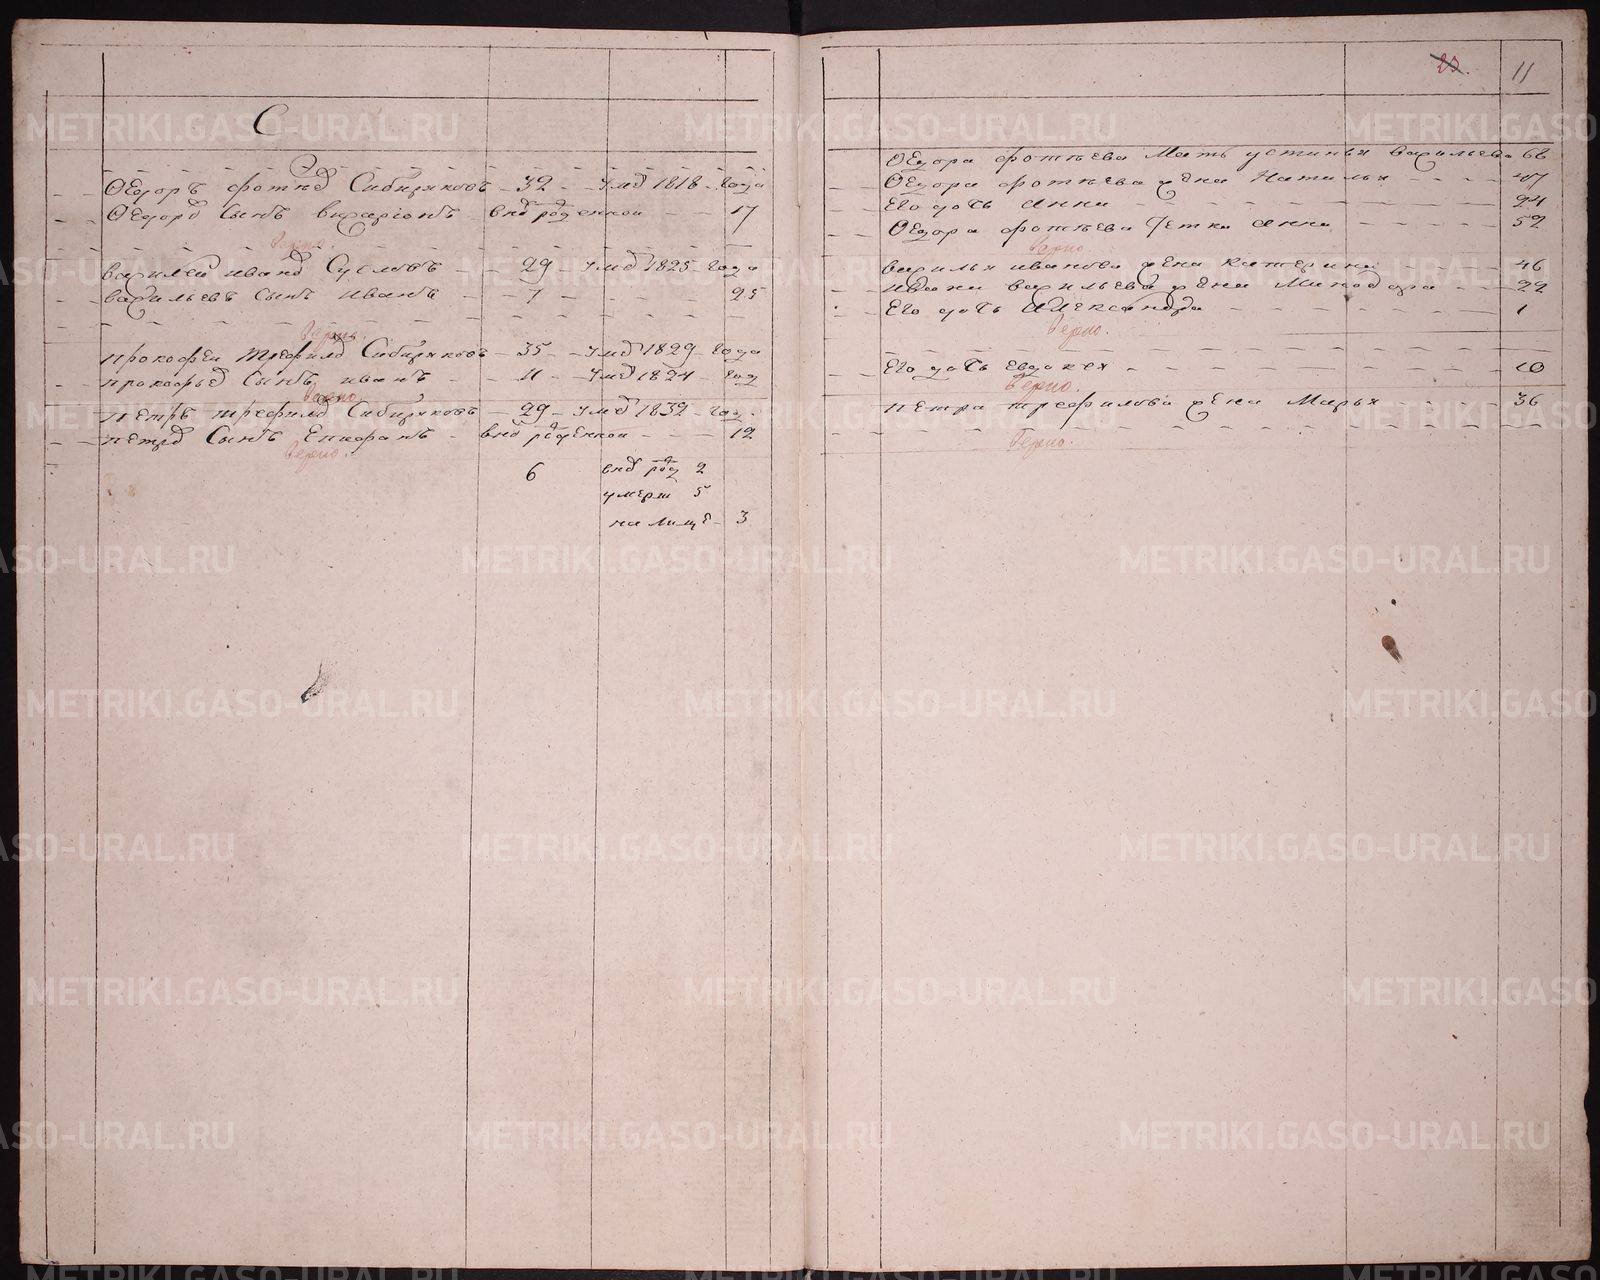 С
Ѳедоръ фотѣевъ Сибиряковъ 32 умеръ 1818 года
Ѳедоровъ сынъ виссаріонъ вновь рожденной 17
Верно.
василей ивановъ Сусловъ 29 умеръ 1825 года
васильевъ сынъ иванъ 7 25
Верно.
прокофей трефиловъ Сибиряковъ 35 умеръ 1829 года
прокофьевъ сынъ иванъ 11 умеръ 1824 год
Верно.
петръ трефиловъ Сибиряковъ 29 умеръ 1832 год
петровъ сынъ Епифанъ вновь рожденной 12
Верно.
6 вновь рож 2
умерш 5
на лице 3
23. 11
Ѳедора фотѣева мать устинья васильева 68
Ѳедора фотѣева жена Наталья 47
Его дочь Анна 24
Ѳедора фотѣева тетка Анна 52
Верно.
василья иванова жена катерина 46
ивана васильева жена Минодора 22
Его дочь Александра 1
Верно.
Его дочь Евдокея 10
Верно.
петра трефилова жена Марья 36
Верно.
METRIKI.GASO-URAL.RU